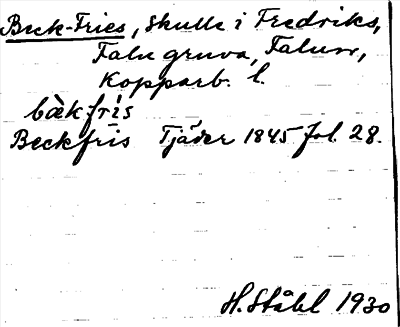 Beck-Fries, Skulle i Fredriks,
Falu gruva, Falun,
Kopparb. l.
bæ̀k-frís
Beckfris Tjäder 1845 fol. 28.
H. Ståhl 1930